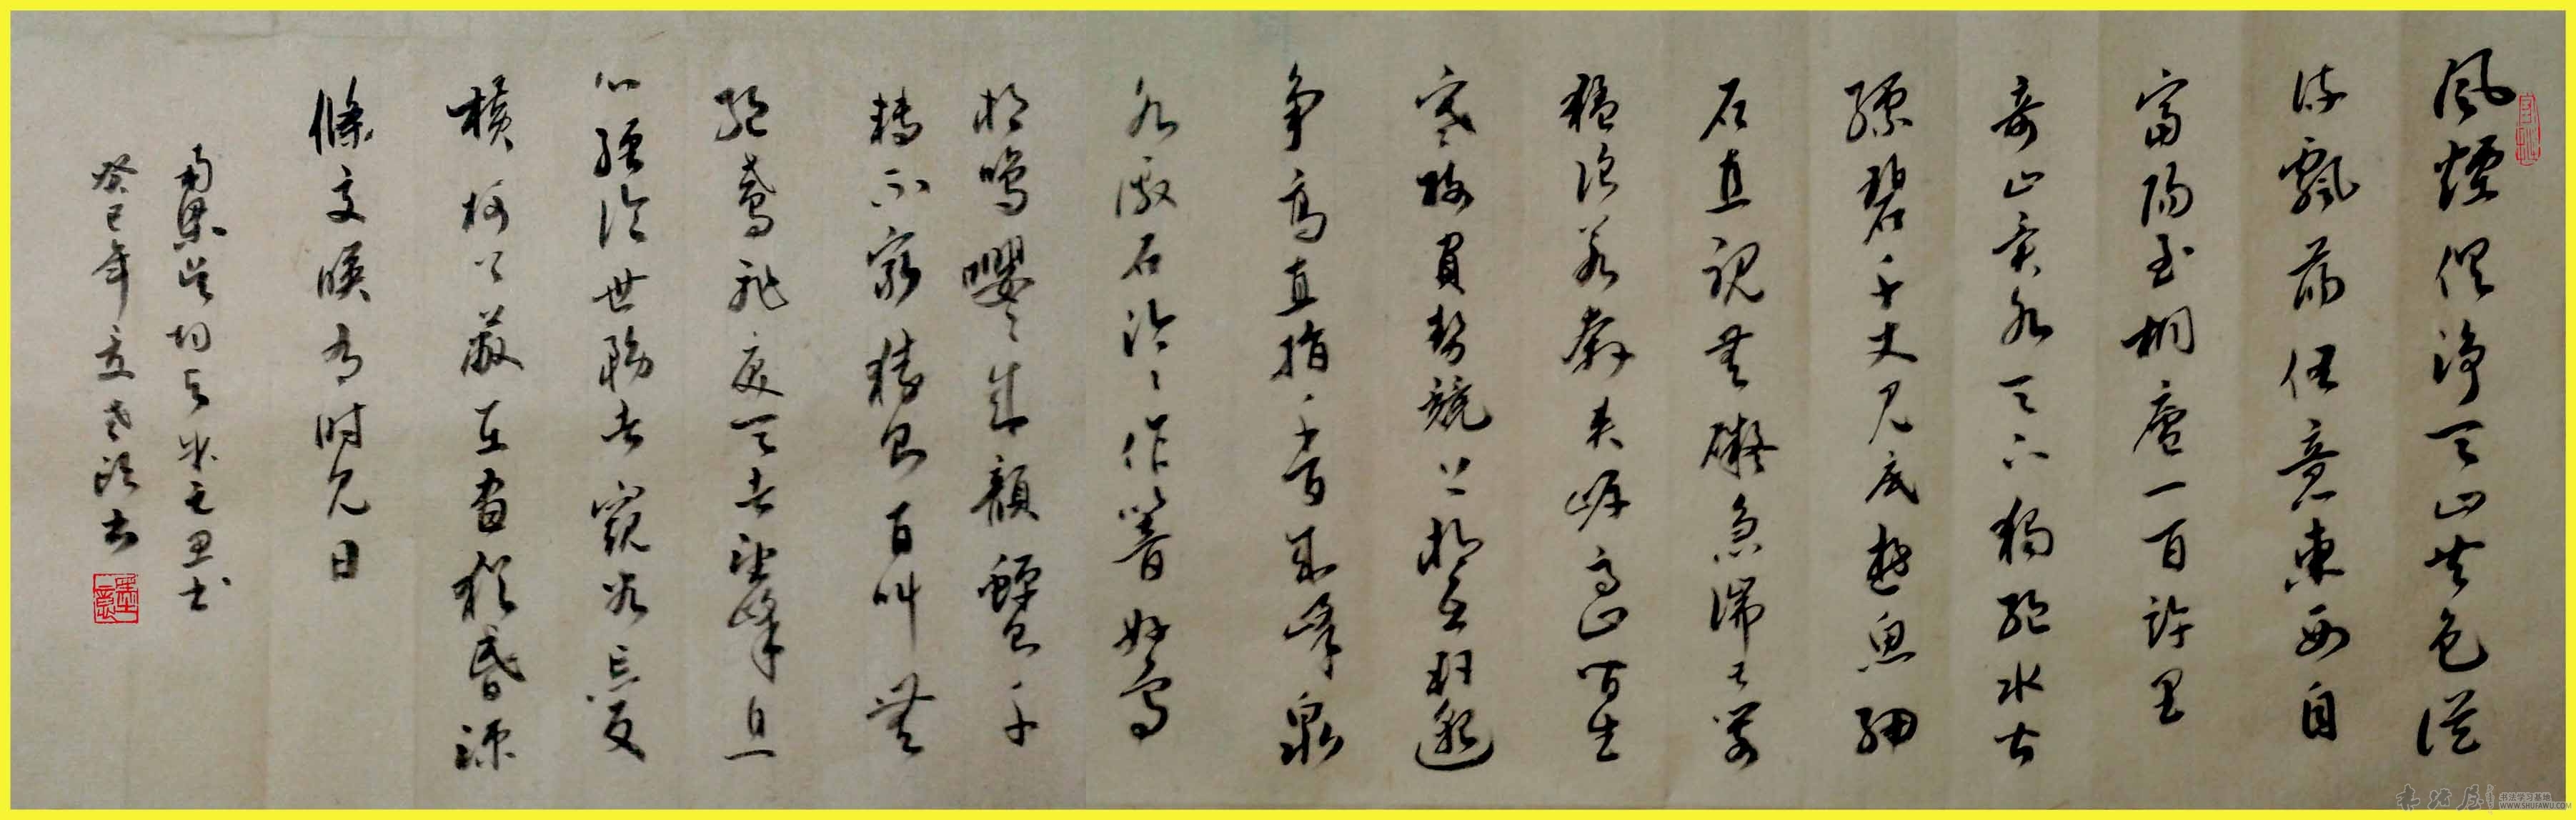 風煙俱淨天山共色從
流飄蕩任意東西自
富陽至桐廬一百許里
奇山異水天下獨絕水皆
縹碧千丈見底遊魚細
石直視無礙急湍甚箭
猛浪若奔夾岸高山皆生
寒樹負勢競上相互軒邈
爭高直指千百成峰泉
水激石泠泠作響好鳥
相鳴嚶嚶成韻蟬則千
轉不窮猿則百叫無
絕鳶飛戾天者望峰息
心經綸世務者窺谷忘反
橫柯上蔽在晝猶昏疎
條交映有時見日
南梁吳均與朱元思书
癸巳年立书
书法学习基地
WWW.SHUFAWU.COM